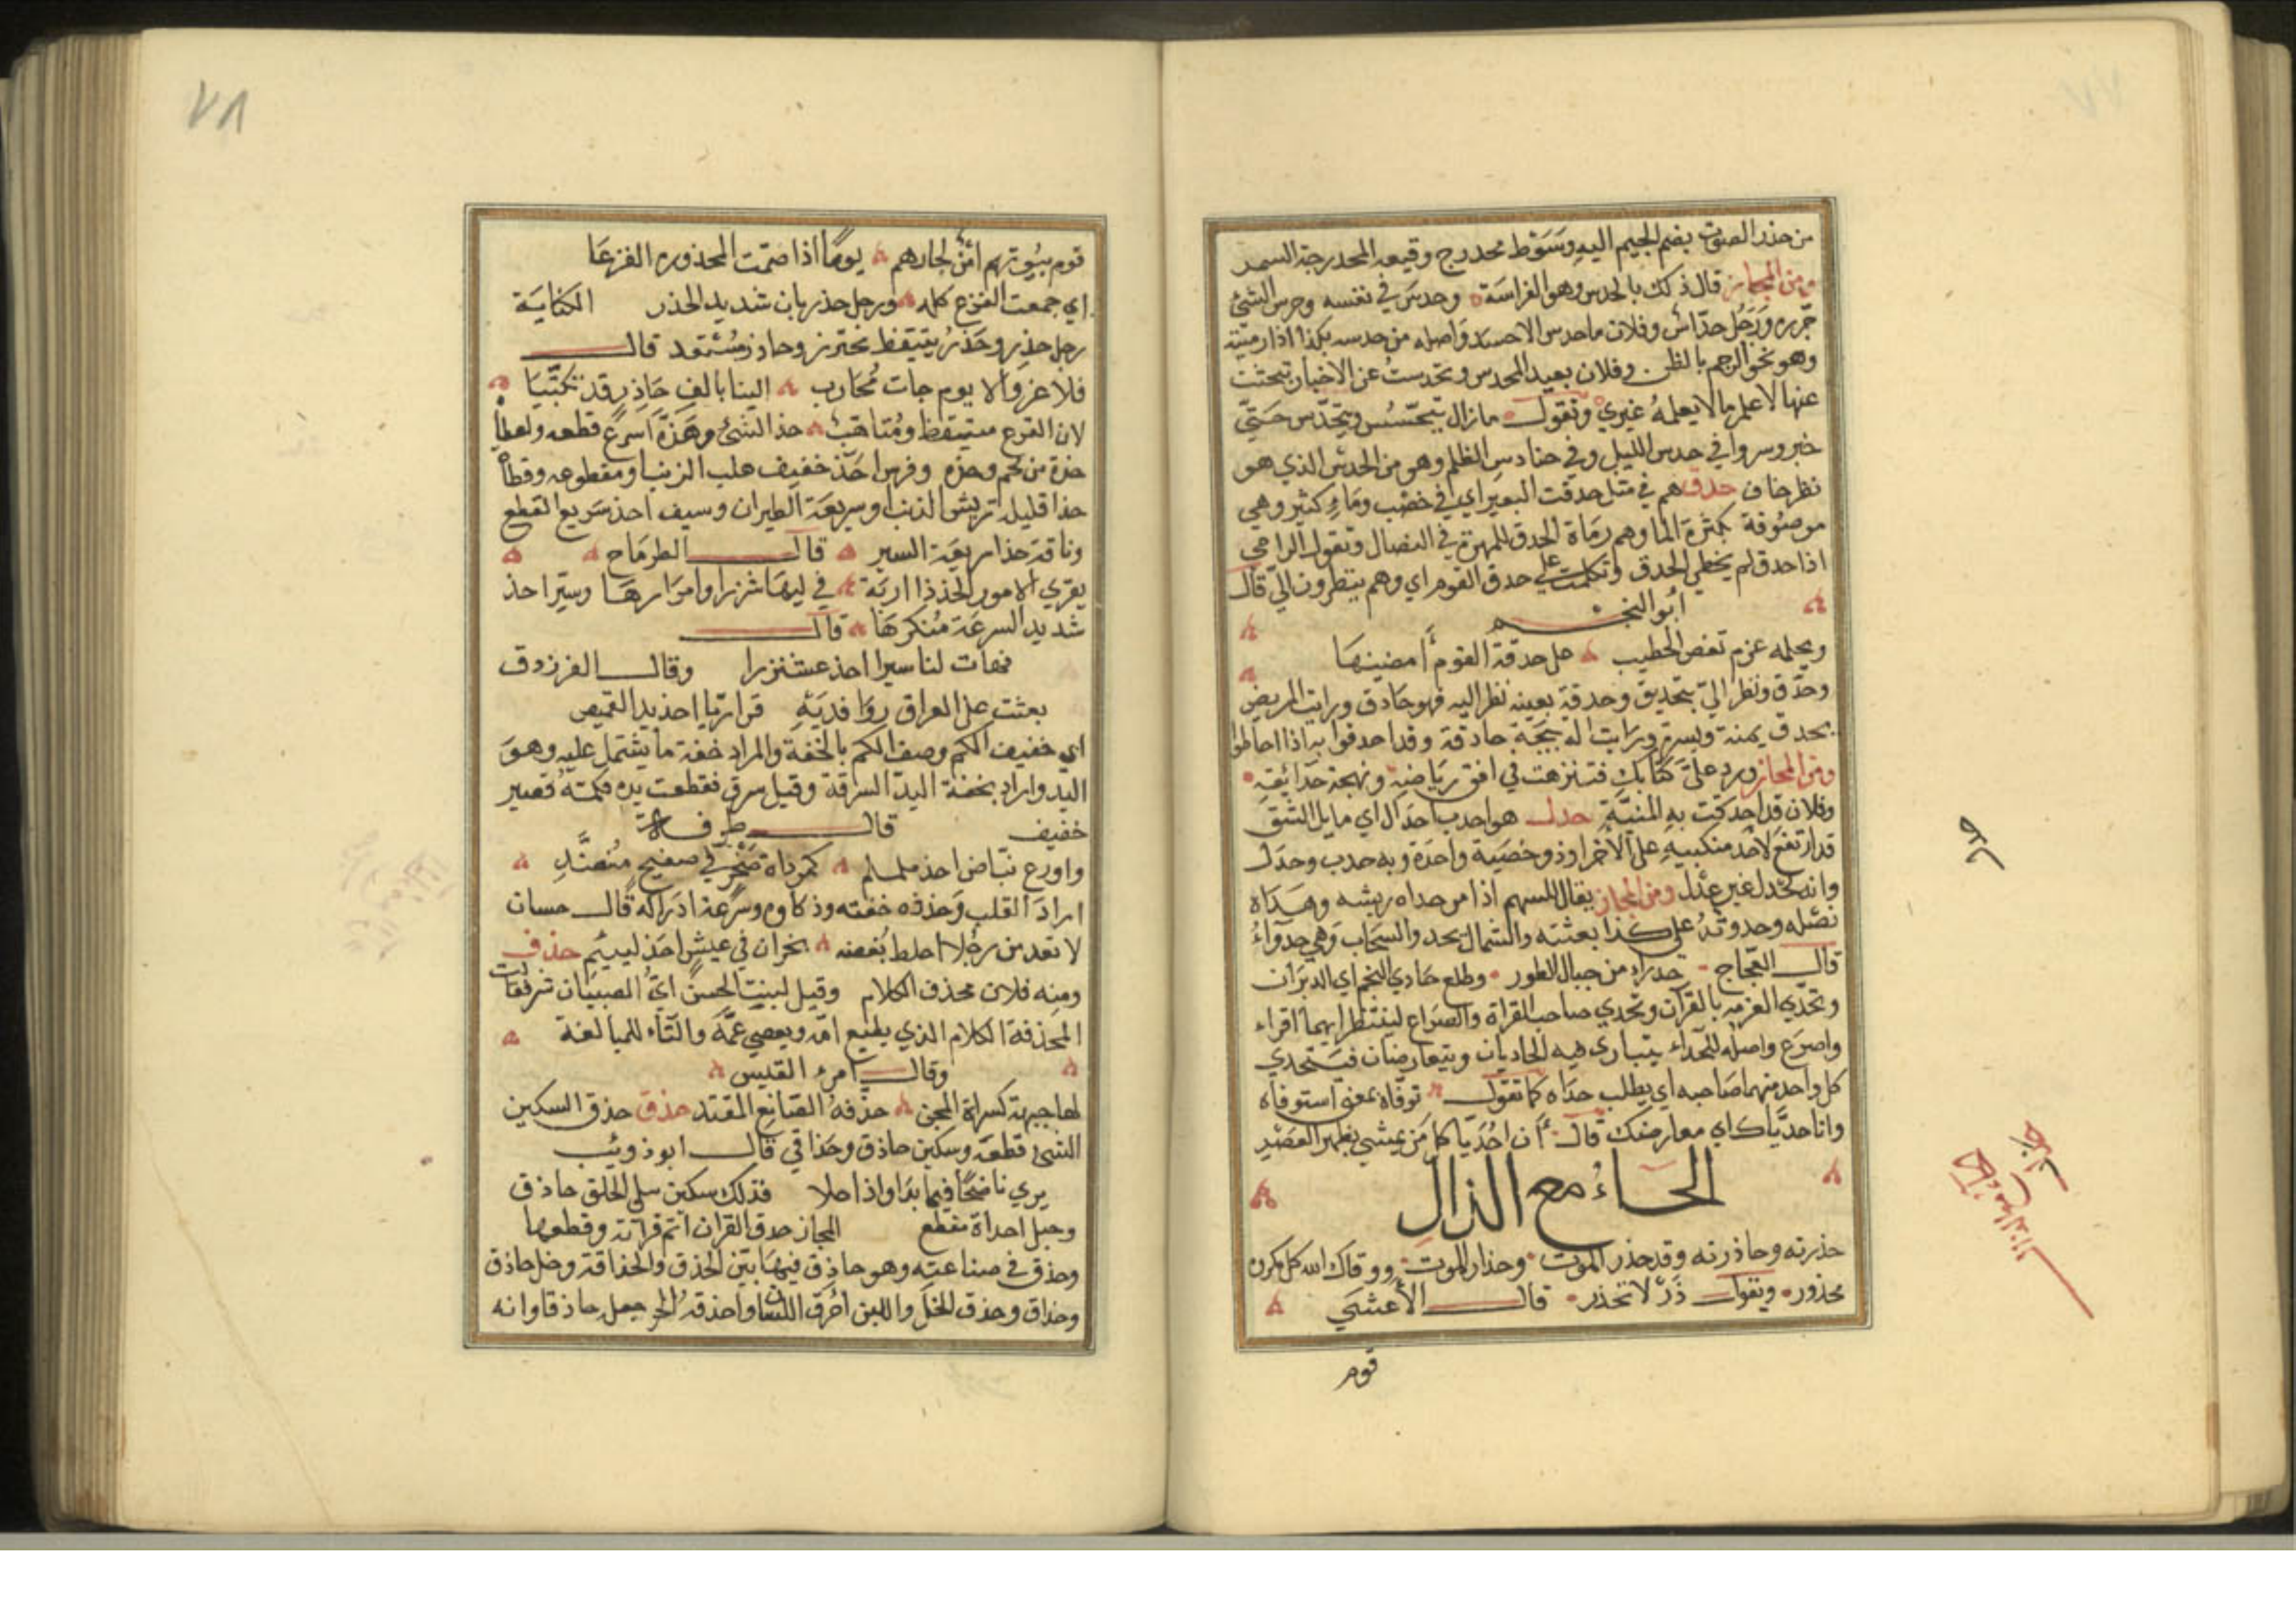 من حذر الصوت بضم الجيم اليه وسوط محدرج وقيعه المحدرجة السمر
ومن المجاز قال ذكك بالحدس وهو الفراسة وحدس في نفسه وحرس الشئ
حرره ورجل حداس وفلان ماحدس الاحسد واصله من حدسه بكذا اذا رميته
وهو نحو الرجم بالظن وفلان بعيد المحدس وتحدست عن الاخبار تبحثت
عنها لاعلم مالا يعلمه غيري وتقول مازال يتجسس ويتحدس حتى
خبر وسروا في حدس الليل وفي حنادس الظلم وهو من الحدس الذي هو
نظر خاف حدق هم في مثل حدقت البعير اي في خضب وماء كثير وهي
موصوفة بكثرة الما وهم رماة الحدق للمهرة في النضال وتقول الرامي
اذا حدق لم يخطي الحدق وتكلمت على حدق القوم اي وهم ينظرون الي قال
ابو النجم
ويحلمه عزم تغص الخطيب حل حدقة القوم امضينها
وحدق ونظر الي بتحديق وحدقة بعينه نظر اليه فهو حادق ورايت المريض
يحدق يمنة ويسرة ورايت اله بيجة حادقة وقد احدقوا به اذا احاطوا
ومن المجاز ورد علي كتابك فتنزهت في افق رياضه ونهجة حدائقه
وفلان قد احدقت به المنية حدل هو احدب احدال اي مايل الشق
قد ارتفع لاحد منكبيه على الآخر او ذو خصية واحدة وبه حدب وحدل
وانه لحدل غير عدل ومن المجاز يقال للسهم اذا مر حداه ريشه وهداه
نصله وحدوته على كذا بعثته والشمال يحد والسحاب وهي حدوآء
قال العجاج حدراء من جبال الطور وطلع حادي النجم اي الدبران
وتحدى العزمه بالقرآن وتحدي صاحب القراة والصراع لينظر ايهما اقراء
واصرع واصله للحداء يتبارى فيه الحاديان ويتعارضان فيتحدي
كل واحد منهما صاحبه اي يطلب حداه كما تقول توفاه بمعنى استوفاه
وانا حدياك اي معارضك قال أن احديا كل من يمشي بظهر العصير
الحاء مع الذال
حذرته وحاذرته وقد حذر الموت وحذار الموت ووقاك الله كل مكروه
محذور وتقول ذر لا تحذر قال الأعشي
قوم
قوم بيوتهم امن لجارهم يوما اذا ضمت المحذورة الفزعا
اي جمعت الفزع كله ورجل حذريان شديد الحذر الكناية
رجل حذر وحذر يتيقظ محترز وحاذر مستعد قال
فلا عزوالا يوم جات محارب الينا بالف حاذر قد تكتبا
لان الفزع متيقظ ومتاهب حذ الشئ وهذه اسرع قطعه ولعطا
حذة من لحم وحذه وفرس احذ خفيف هلب الذنب او مقطوعه وقطاه
حذا قليلة تريش الذنب او سريعة الطيران وسيف احذ سريع القطع
وناقة حذا سريعة السير قال الطرماح
يقري الامور الحذذا اربة في ليها شزرا وامرارها وسير احذ
شديد السرعة منكرها قال
فهات لنا سيرا احذ عشنزرا وقال الفرزدق
بعثت على العراق روافديه قراريا احذ يد القميص
اي خفيف الكم وصف الكم بالخفة والمراد خفة ما يشتمل عليه وهو
اليد واراد بخفة اليد السرقة وقيل سرق فقطعت يده فكمته قصير
خفيف قال طرفة
واورع نباض احذ ململم كمرداة صخر في صفيح منضد
اراد القلب وحذفه خفته وذكاوه وسرعة ادراكه قال حسان
لا تعدمن رجلا احلط بغضه بخران في عيش احذ لييئم حذف
ومنه فلان محذف الكلام وقيل لبنت الحسن اي الصبيان شر قالت
المحذفة الكلام الذي يطيع امه ويعصي عمه والتاء للمبالغة
وقال امرء القيس
لها جبهة كسراة المجن حذفه الصانع المقتدر حذق حذق السكين
الشئ قطعه وسكين حاذق وحذاقي قال ابو ذويب
يري ناضحا فيما بدا واذا خلا فذلك سكين على الحلق حاذق
وحبل احداة مقطع المجاز حدق القران اتم قرآته وقطعها
وحذق في صناعته وهو حاذق فيها بين الحذق والحذاقة وخل حاذق
وحذاق وحذق الخل واللبن احرق اللسان واحذقه الحر جعل حاذقا وانه
٧٨